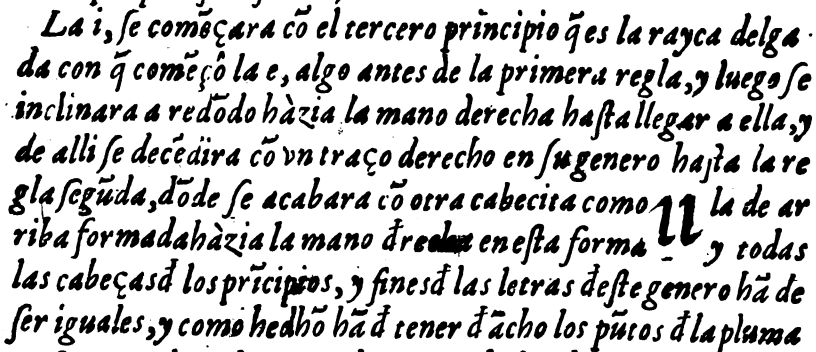 La i, ſe comẽçara cõ el tercero principio q̃ es la rayca delga
da con q̃ comẽçô la e, algo antes de la primera regla, y luego ſe
inclinara a redõdo hàzia la mano derecha haſta llegar a ella, y
de alli ſe decẽdira cõ vn traço derecho en ſu genero haſta la re
gla ſegũda, dõde ſe acabara cõ otra cabecita como la de ar
riba formada hàzia la mano en eſta forma y todas
las cabeças đ los prĩcipios, y fines đ las letras đeſte genero hã de
ſer iguales, y como he đhõ hã đ tener đ ãcho los pũtos đ la pluma